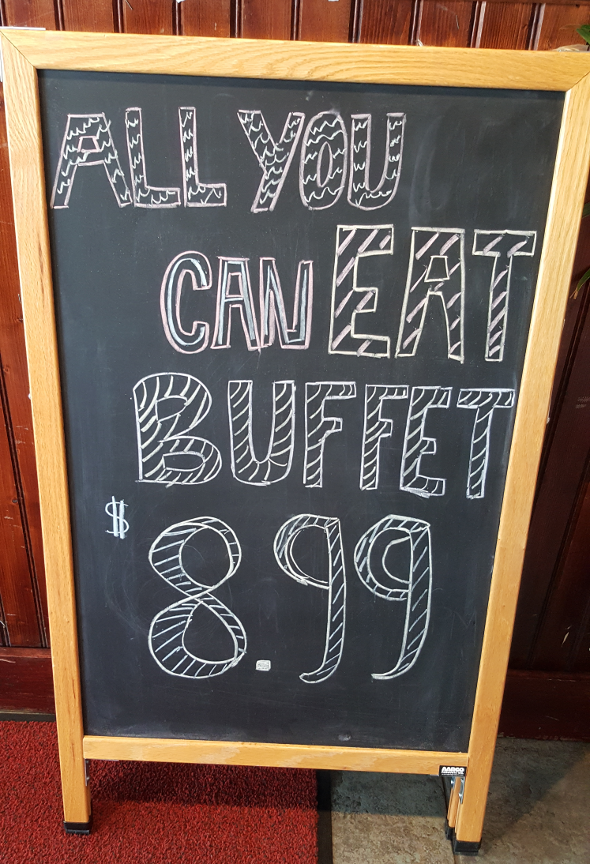 ALL YOU
CAN EAT
BUFFET
$ 8.99
AARCO